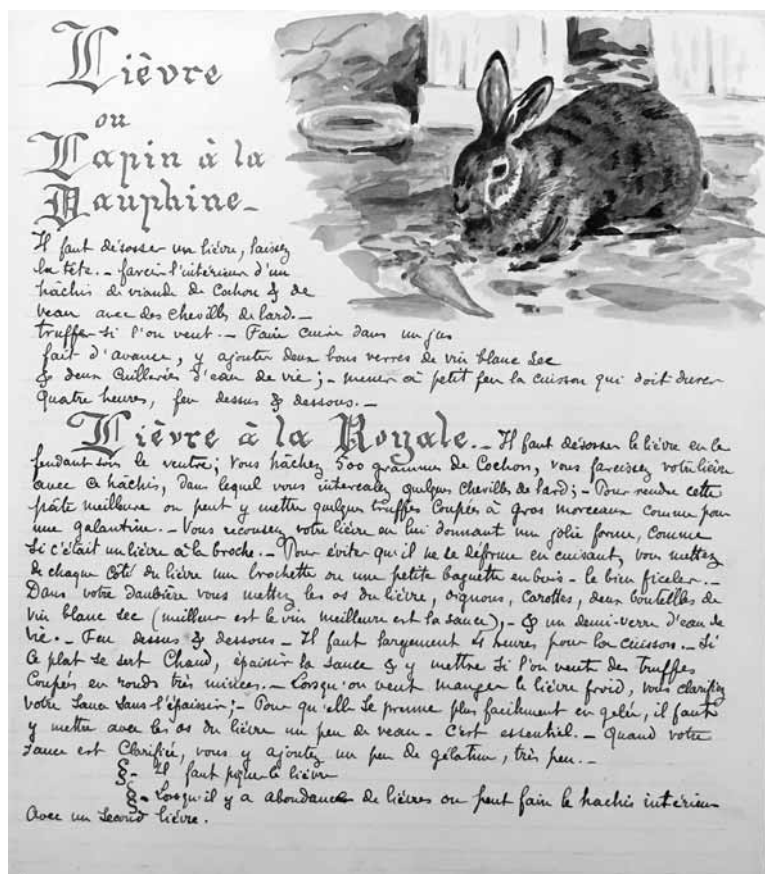 Lièvre
ou
Lapin à la
Dauphine_
Il faut désosser un lièvre, laissez
la tête._ farcir l'intérieur d'un
hâchis de viande de Cochon & de
veau avec des Chevilles de lard._
truffer si l'on veut._ Faire cuire dans un jus
fait d'avance, y ajouter deux bons verres de vin blanc sec
& deux Cuillerées d'eau de vie;_ mener à petit feu la cuisson qui doit durer
quatre heures, feu dessus & dessous._
Lièvre à la Royale._ Il faut désosser le lièvre en le
fendant sous le ventre; vous hâchez 500 grammes de Cochon, vous farcissez votre lièvre
avec ce hâchis, dans lequel vous intercalez quelques Chevilles de lard;_ Pour rendre cette
pâte meilleure on peut y mettre quelques truffes Coupées à gros morceaux comme pour
une galantine._ Vous recousez votre lièvre en lui donnant une jolie forme, comme
si c'était un lièvre à la broche._ Pour éviter qu'il ne se déforme en cuisant, vous mettez
de chaque Côté du lièvre une brochette ou une petite baguette en bois_ le bien ficeler._
Dans votre daubière vous mettez les os du lièvre, oignons, Carottes, deux bouteilles de
vin blanc sec (meilleur est le vin meilleure est la sauce),_ & un demi-verre d'eau de
vie._ Feu dessus & dessous_ Il faut largement 4 heures pour la cuisson._ Si
ce plat se sert Chaud, épaissir la sauce & y mettre si l'on veut des truffes
Coupées en ronds très minces._ Lorsqu'on veut manger le lièvre froid, vous clarifiez
votre sauce sans l'épaissir;_ Pour qu'elle se prenne plus facilement en gelée, il faut
y mettre avec les os du lièvre un peu de veau_ C'est essentiel._ Quand votre
sauce est Clarifiée, vous y ajoutez un peu de gélatine, très peu._
§_ Il faut piquer le lièvre
§_ Lorsqu'il y a abondance de lièvres on peut faire le hachis intérieur
Avec un second lièvre.